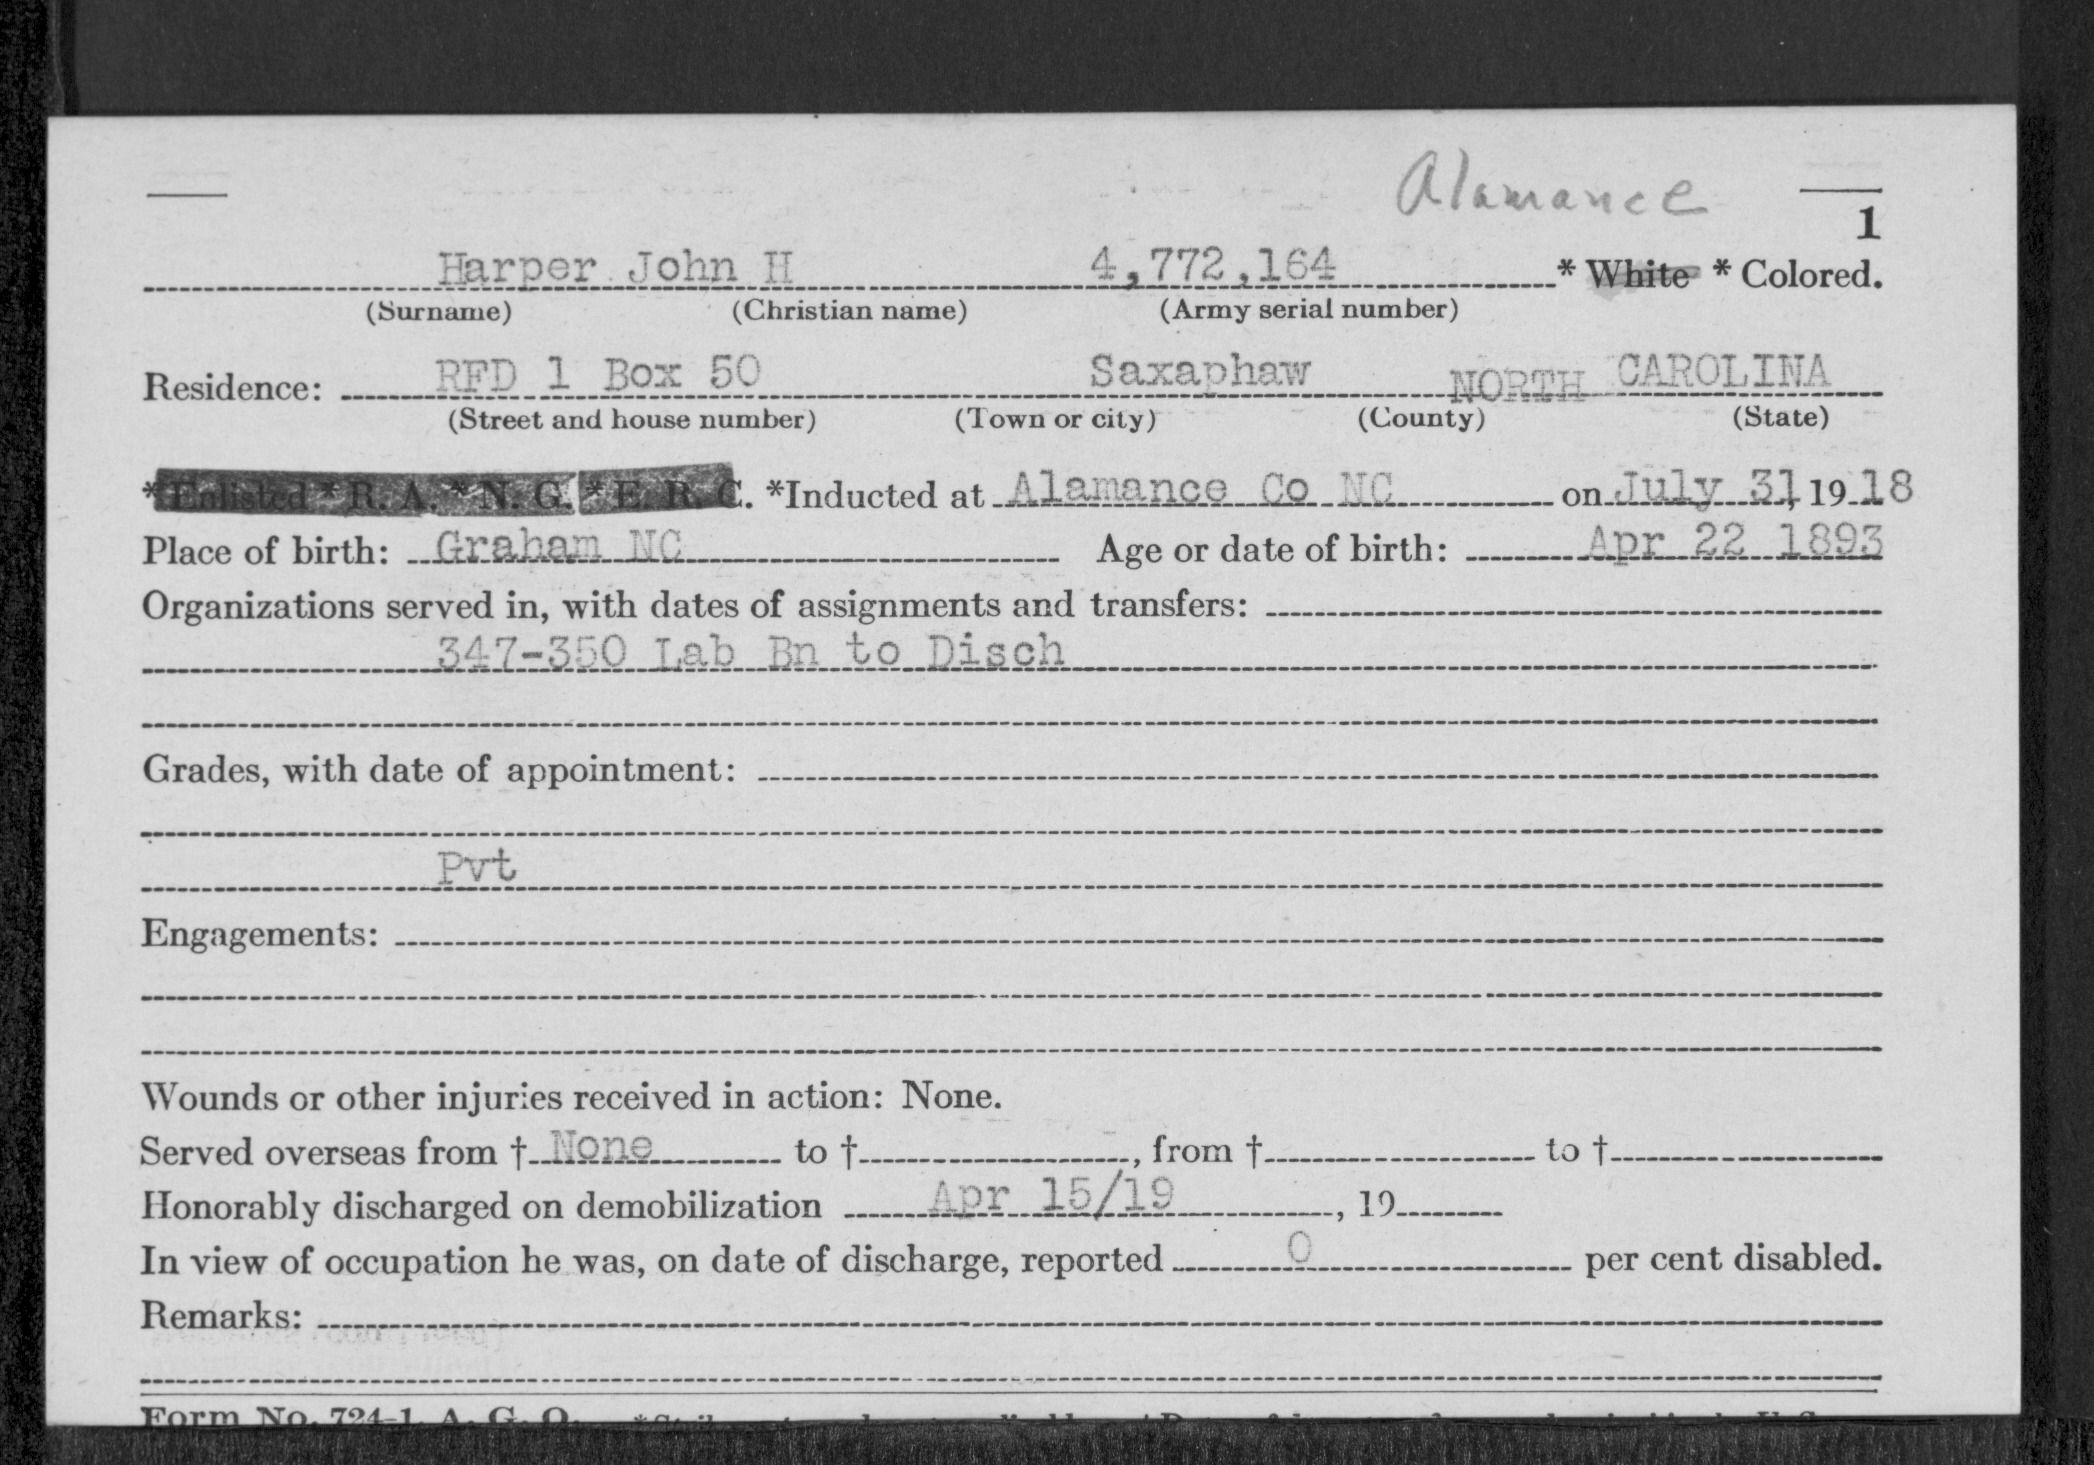 Alamance
1
Harper John H 4,772,164 * White * Colored.
(Surname) (Christian name) (Army serial number)
Residence: RFD 1 Box 50 Saxaphaw NORTH CAROLINA
(Street and house number) (Town or city) (County) (State)
*Enlisted * R. A. * N. G. * E. R. C. *Inducted at Alamance Co NC on July 31, 1918
Place of birth: Graham NC Age or date of birth: Apr 22 1893
Organizations served in, with dates of assignments and transfers:
347-350 Lab Bn to Disch
Grades, with date of appointment:
Pvt
Engagements:
Wounds or other injuries received in action: None.
Served overseas from † None to † , from † to †
Honorably discharged on demobilization Apr 15/19 , 19
In view of occupation he was, on date of discharge, reported 0 per cent disabled.
Remarks:
Form No. 724-1, A. G. O.